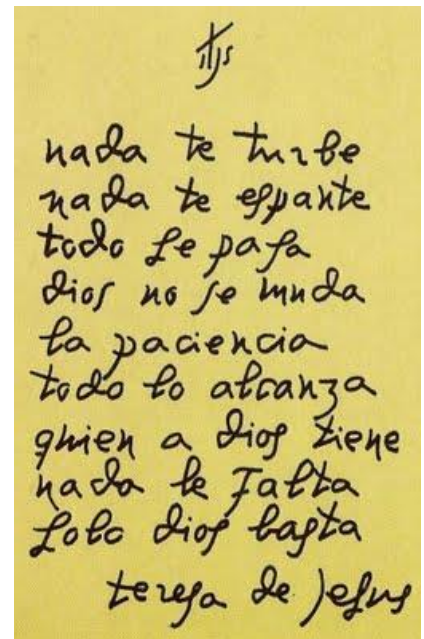 ihs
nada te turbe
nada te espante
todo se pasa
dios no se muda
la paciencia
todo lo alcanza
quien a dios tiene
nada le falta
solo dios basta
teresa de jesus